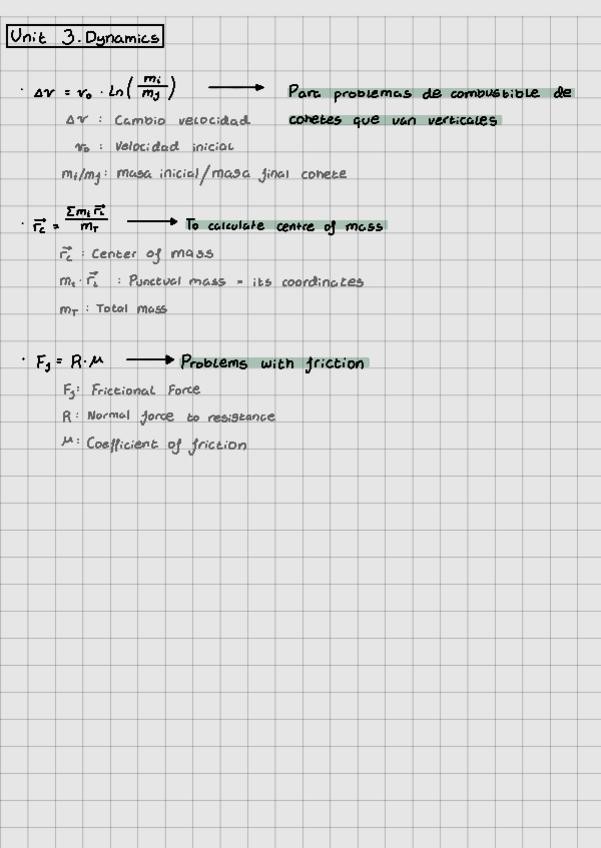 Unit 3. Dynamics
· Δv = v₀ · Ln(mi/mf) → Para problemas de combustible de
cohetes que van verticales
Δv : Cambio velocidad
v₀ : Velocidad inicial
mi/mf : masa inicial/masa final cohete
· r⃗c = Σmi r⃗i / mT → To calculate centre of mass
r⃗c : Center of mass
mi · r⃗i : Punctual mass - its coordinates
mT : Total mass
· Ff = R · μ → Problems with friction
Ff : Frictional Force
R : Normal force to resistance
μ : Coefficient of friction